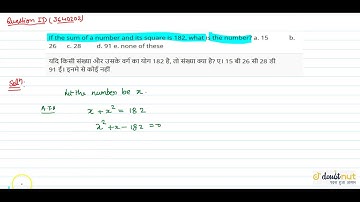 Question ID (3640202)
If the sum of a number and its square is 182, what is the number? a. 15 b.
26 c. 28 d. 91 e. none of these
यदि किसी संख्या और उसके वर्ग का योग 182 है, तो संख्या क्या है? ए। 15 बी 26 सी 28 डी
91 ई। इनमे से कोई नहीं
Solⁿ.
let the number be x.
A.T.Q
x + x² = 182
x² + x - 182 = 0
doubtnut